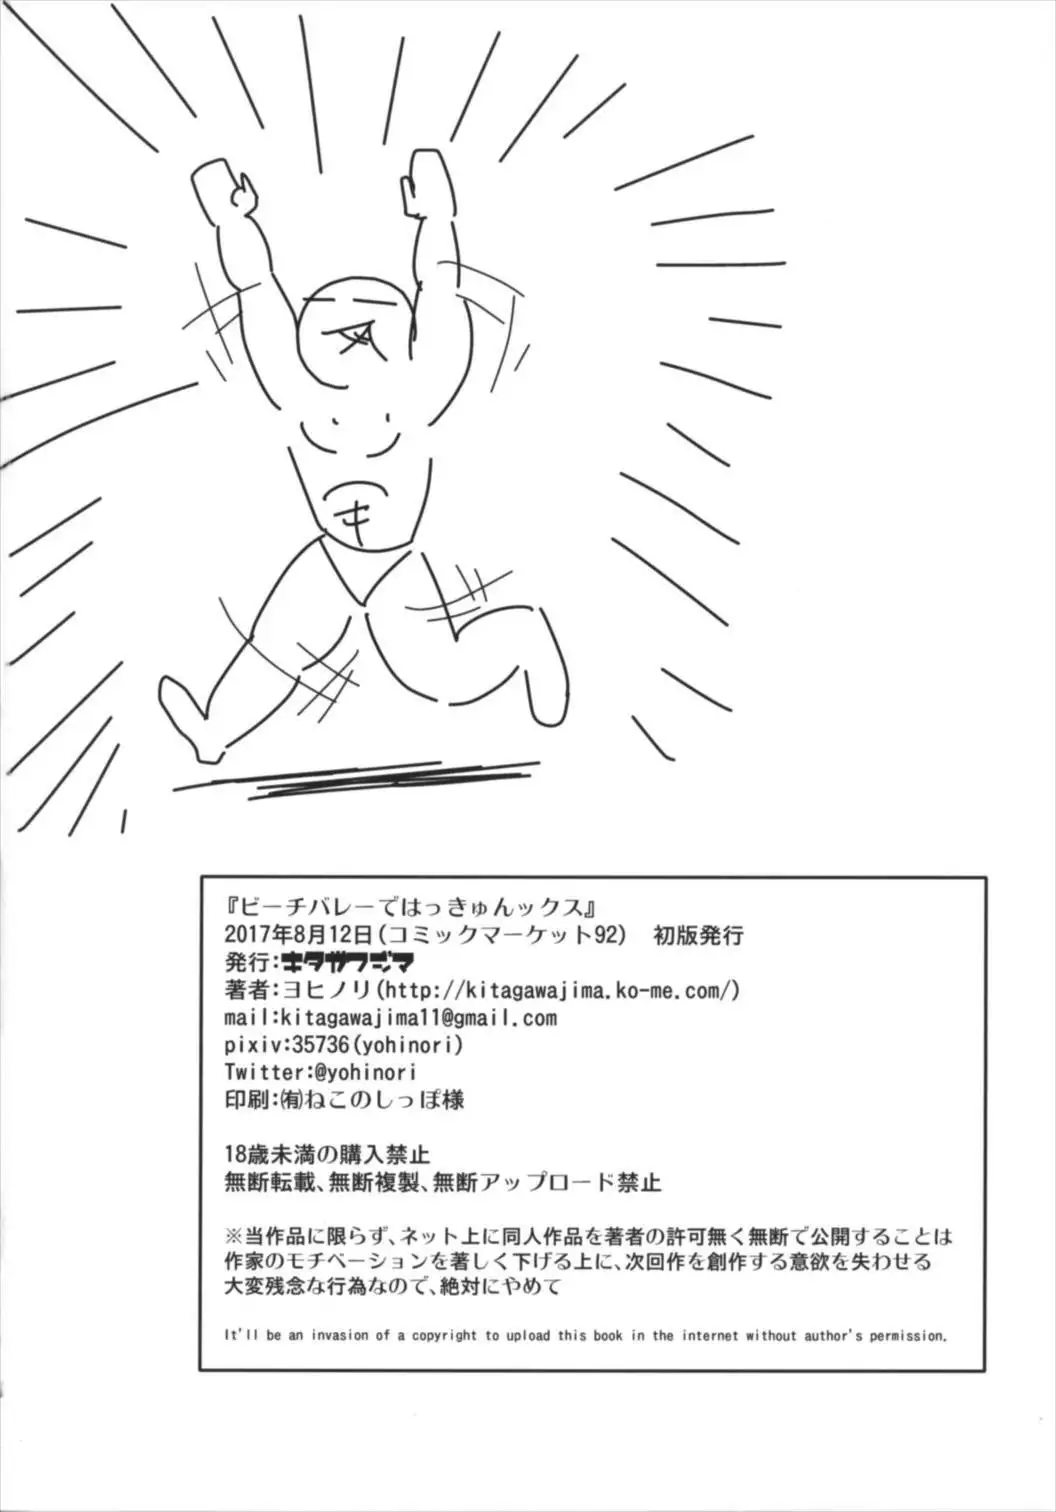 キ
『ビーチバレーではっきゅんックス』
2017年8月12日(コミックマーケット92)　初版発行
発行:キタガワジマ
著者:ヨヒノリ(http://kitagawajima.ko-me.com/)
mail:kitagawajima11@gmail.com
pixiv:35736(yohinori)
Twitter:@yohinori
印刷:㈲ねこのしっぽ様
18歳未満の購入禁止
無断転載、無断複製、無断アップロード禁止
※当作品に限らず、ネット上に同人作品を著者の許可無く無断で公開することは
作家のモチベーションを著しく下げる上に、次回作を創作する意欲を失わせる
大変残念な行為なので、絶対にやめて
It'll be an invasion of a copyright to upload this book in the internet without author's permission.